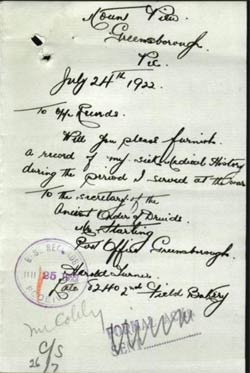 Mount View
Greensborough.
Vic.
July 24TH 1922.
To Offr Records.
Will you please furnish
a record of my Sick Medical History
during the period I served at the war
To the secretary of the
Ancient Order of Druids
Mr Starling
Post Office Greensborough.
Harold Turner
Late 5240 2nd Field Bakery
25
C/S
26/7